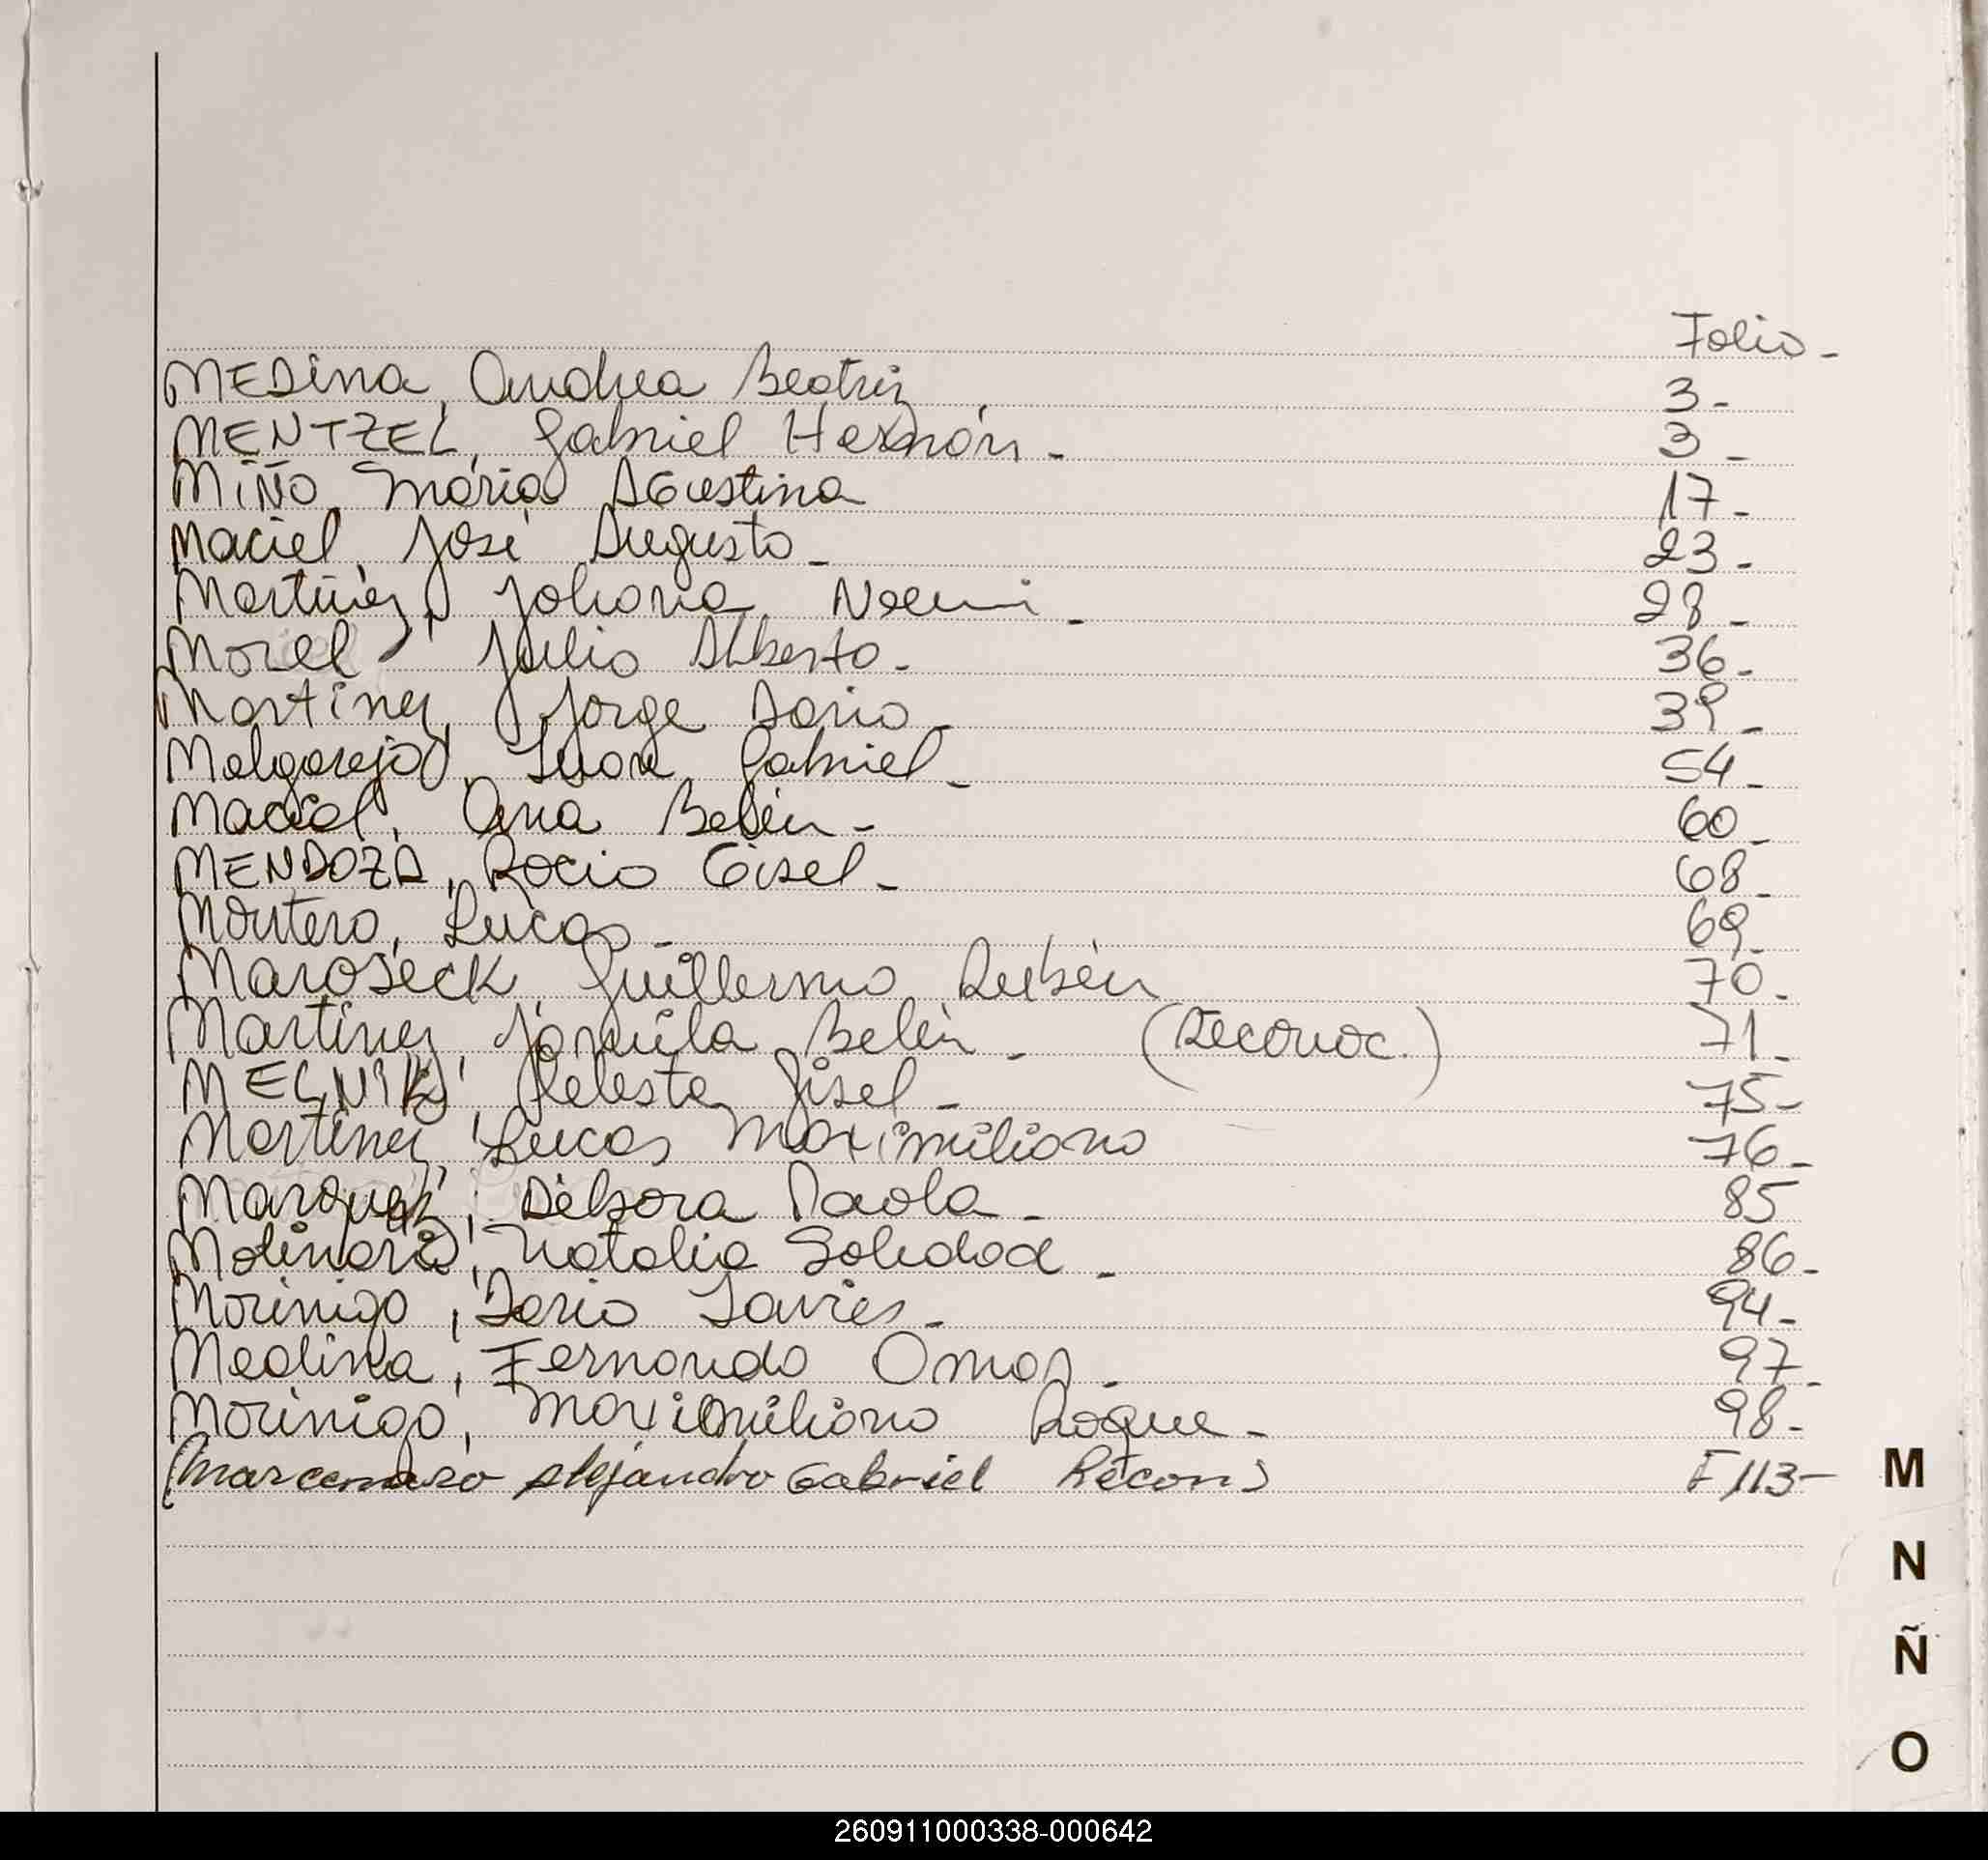 Folio-
MEDina, Andrea Beatriz 3-
MENTZEL, Gabriel Hernán- 3-
MiÑO, María AGustina 17-
Maciel, José Augusto- 23-
Martinez, Johana Noemi- 28-
Morel, Julio Alberto- 36-
Martinez, Jorge Dario- 39-
Melgarejo, Juan Gabriel- 54-
Maciel, Ana Belén- 60-
MENDOZA, Rocio Gisel- 68-
Montero, Lucas- 69-
Maroseck, Guillermo Rubén 70-
Martinez, Jamila Belén- (Reconoc.) 71-
MELNIK, Celeste Gisel- 75-
Martinez, Lucas Maximiliano 76-
Marquez, Débora Paola- 85
Molinari, Natalia Soledad- 86-
Morinigo, Dario Javier- 94-
Medina, Fernando Omar- 97-
Morinigo, Maximiliano Roque- 98-
(Marcenaro Alejandro Gabriel Recon) F 113-
M
N
Ñ
O
260911000338-000642